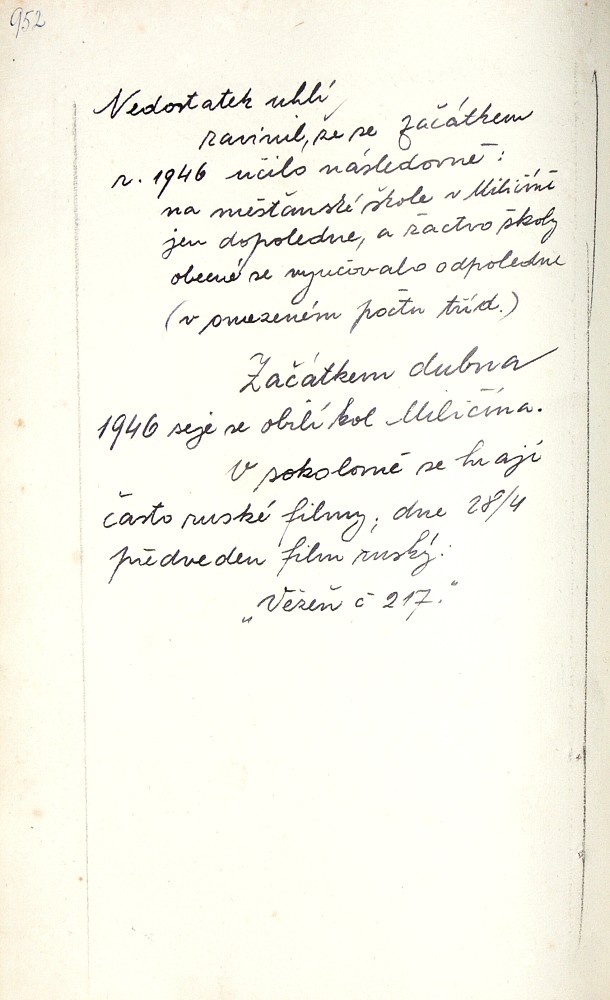 952
Nedostatek uhlí
zavinil, že se začátkem
r. 1946 učilo následovně:
na měšťanské škole v Miličíně
jen dopoledne, a žactvo školy
obecné se vyučovalo odpoledne
(v omezeném počtu tříd.)
Začátkem dubna
1946 seje se obilí kol Miličína.
V sokolovně se hrají
často ruské filmy, dne 28/4
předveden film ruský:
„Vězeň č 217."